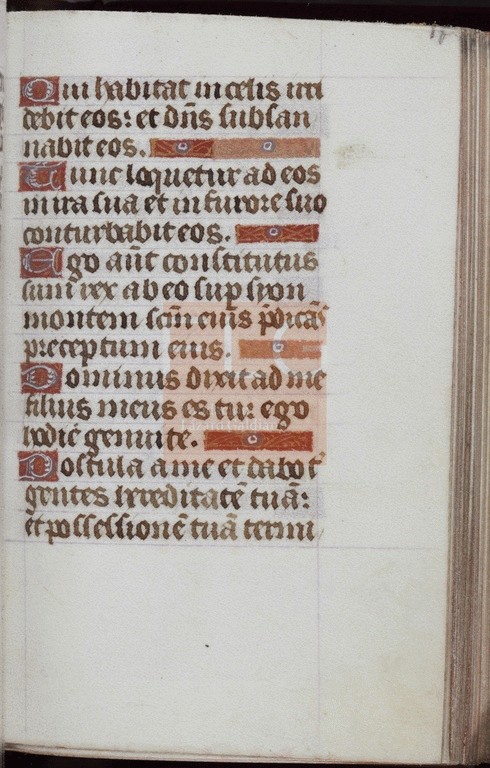 Qui habitat in celis irri
debit eos: et dn̄s subsan
nabit eos.
Tunc loquetur ad eos
in ira sua et in furore suo
conturbabit eos.
Ego aūt constitutus
sum rex ab eo sup syon
montem scm̄ eius p̄dicās
preceptum eius.
Dominus dixit ad me
filius meus es tu: ego
hodie genui te.
Postula a me et dabo t̄
gentes hereditatē tuā:
et possessionē tuā termi